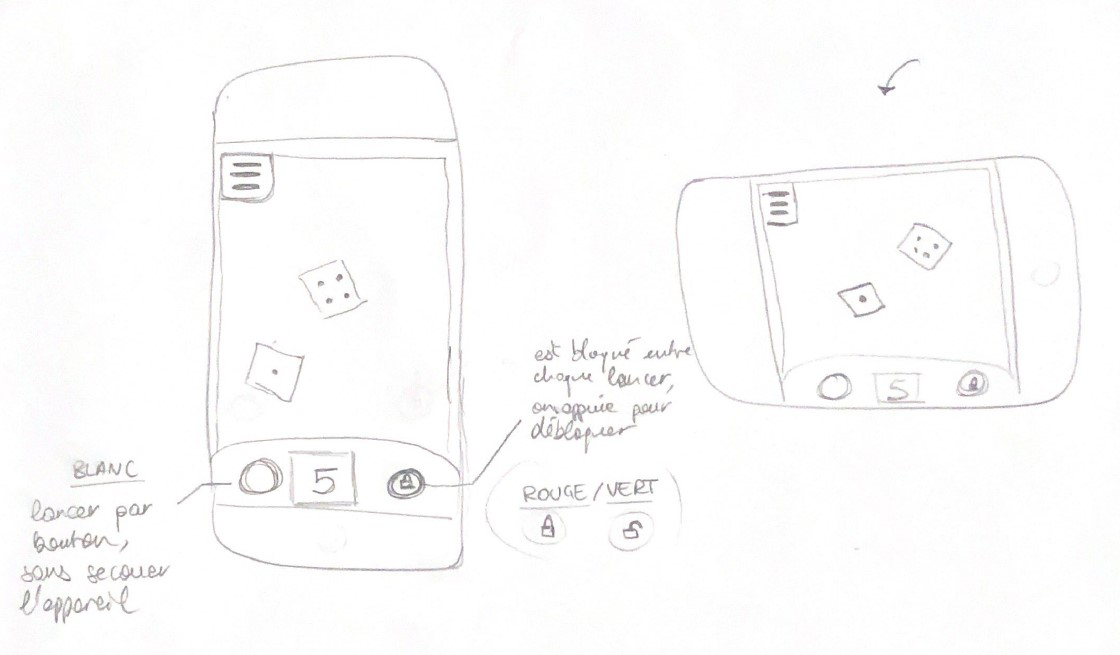 5
BLANC
lancer par
bouton,
sans secouer
l'appareil
est bloqué entre
chaque lancer,
on appuie pour
débloquer
ROUGE / VERT
5